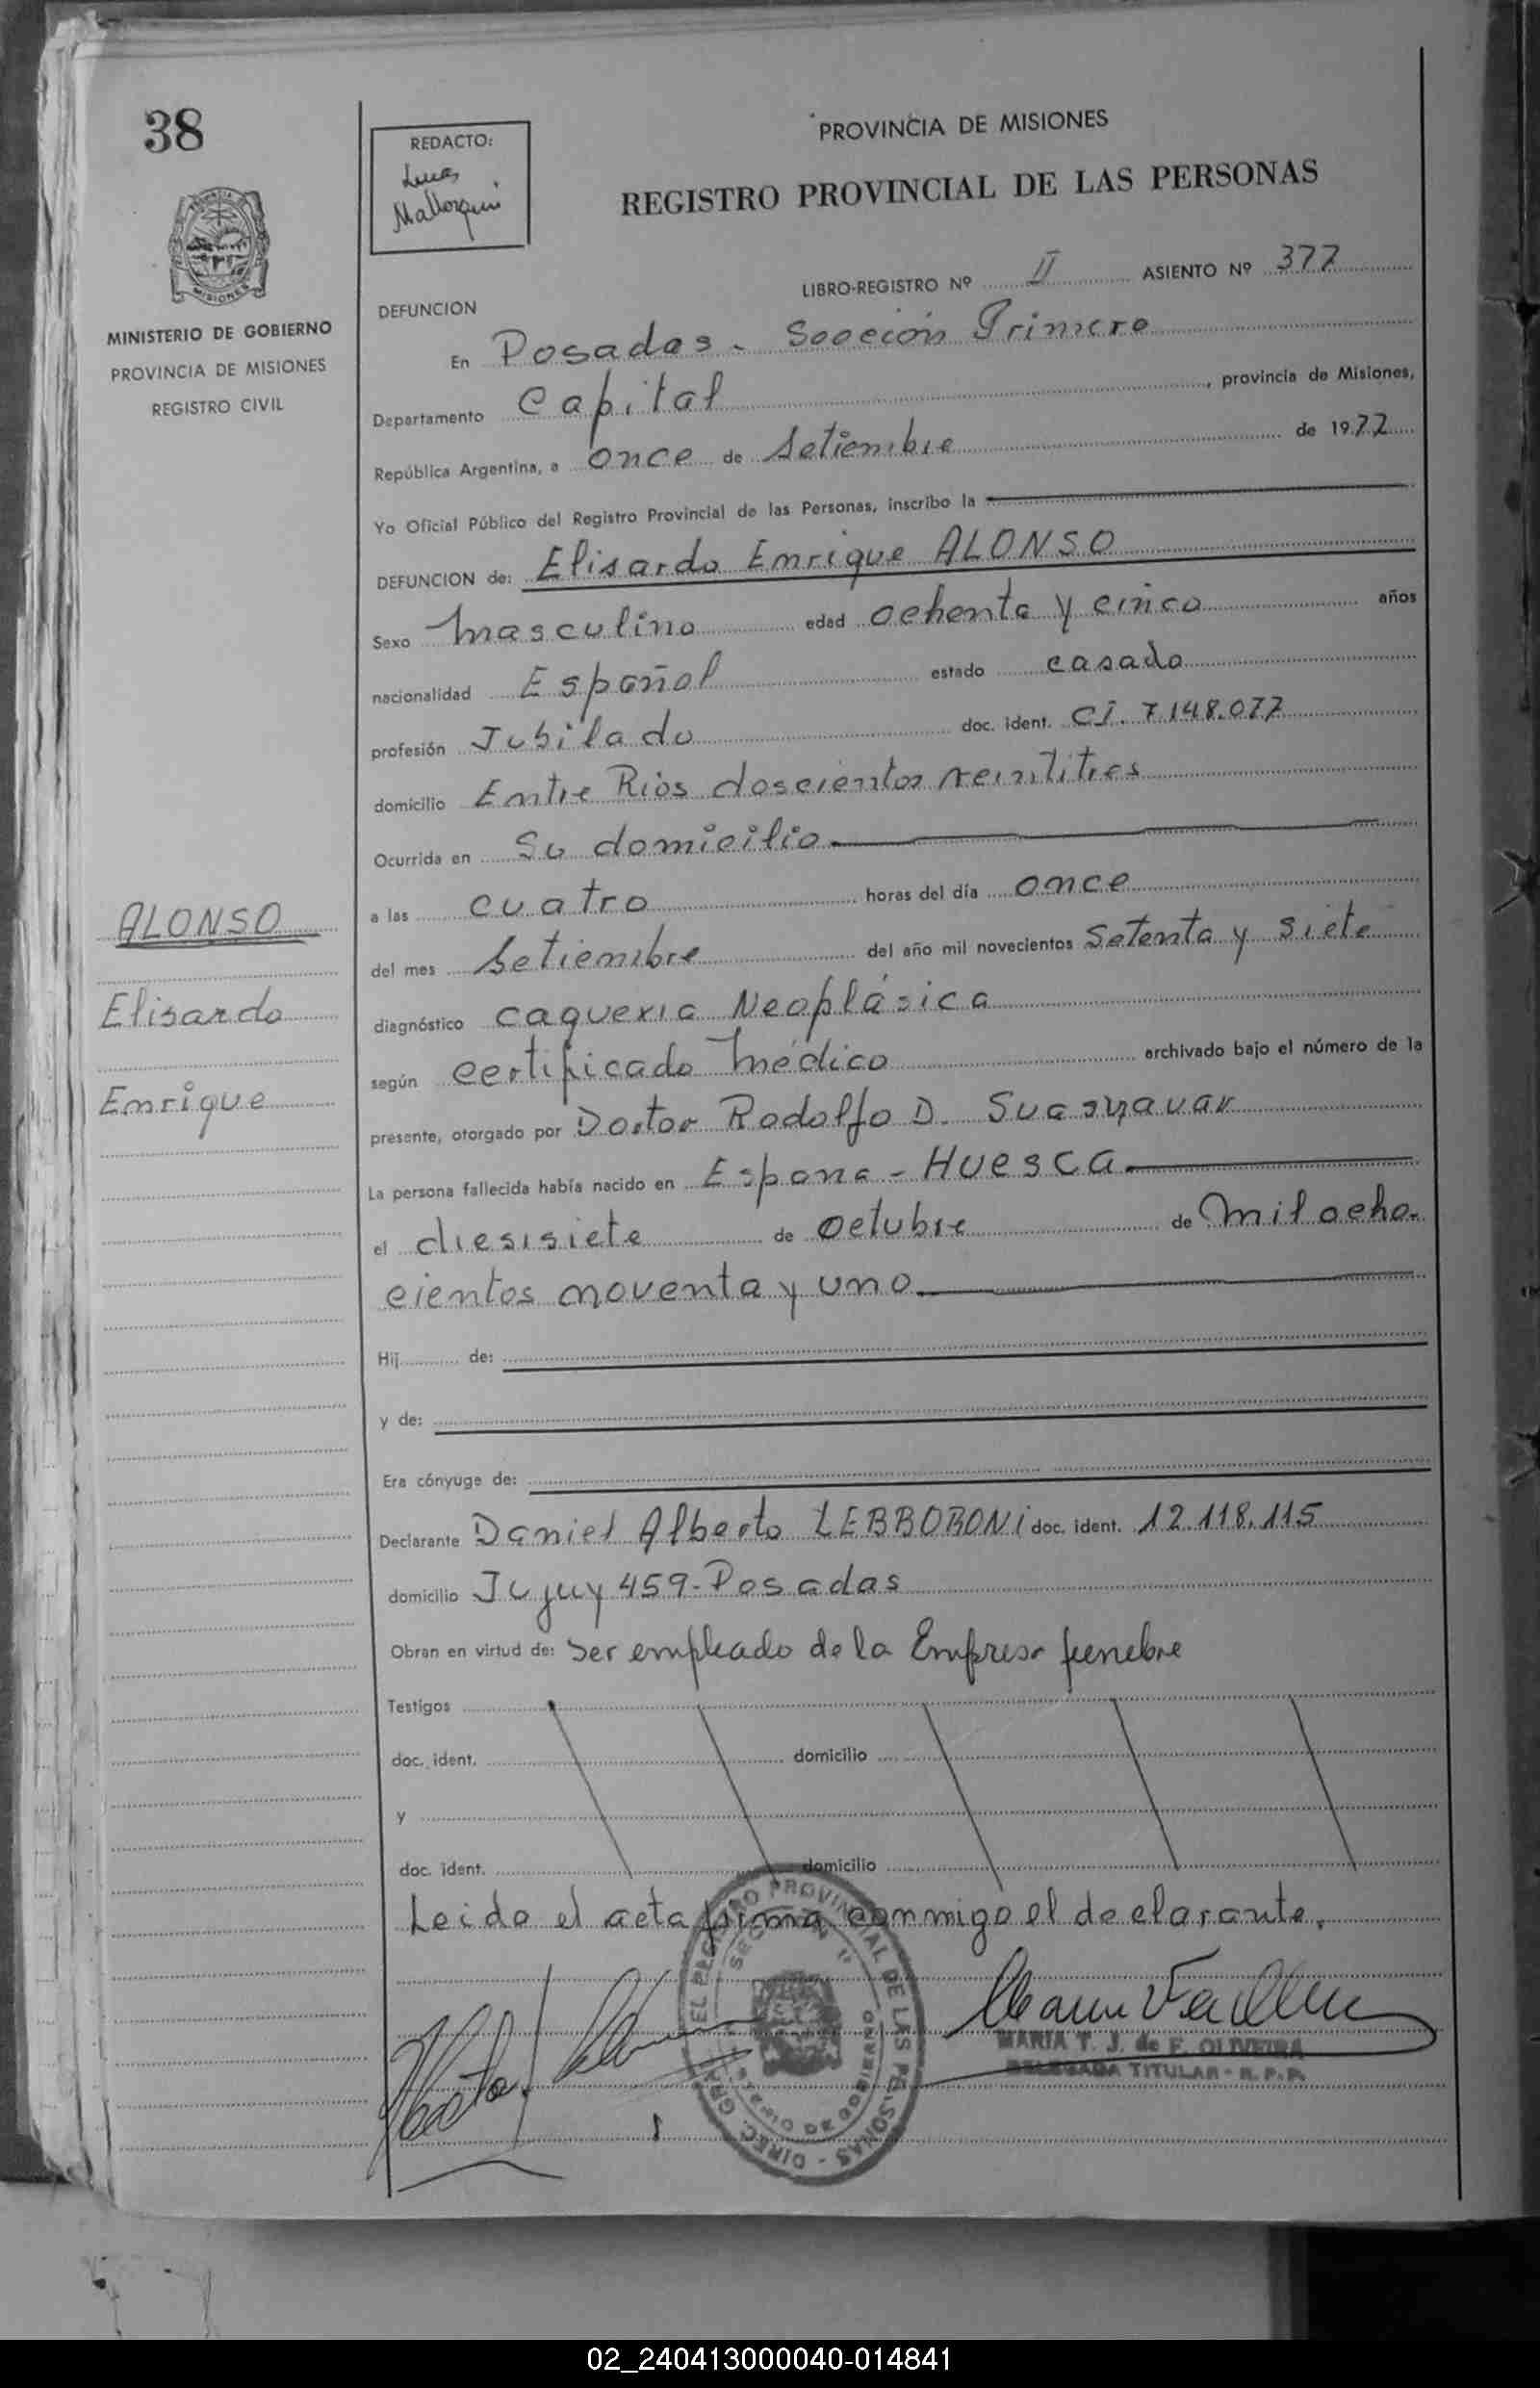 38
REDACTO:
Lucas
Mallorquin
PROVINCIA DE MISIONES
REGISTRO PROVINCIAL DE LAS PERSONAS
MISIONES
MINISTERIO DE GOBIERNO
PROVINCIA DE MISIONES
REGISTRO CIVIL
LIBRO-REGISTRO Nº II ASIENTO Nº 377
DEFUNCION
En Posadas - Sección Primera
Departamento Capital, provincia de Misiones,
República Argentina, a once de Setiembre de 1977
Yo Oficial Público del Registro Provincial de las Personas, inscribo la
DEFUNCION de: Elisardo Enrique ALONSO
Sexo Masculino edad ochenta y cinco años
nacionalidad Español estado casado
profesión Jubilado doc. ident. CI. 7.148.077
domicilio Entre Ríos doscientos veintitres
Ocurrida en Su domicilio
a las cuatro horas del día once
del mes Setiembre del año mil novecientos Setenta y siete
diagnóstico caquexia Neoplásica
según certificado Médico archivado bajo el número de la
presente, otorgado por Doctor Rodolfo D.
La persona fallecida había nacido en España - Huesca
el diesisiete de octubre de Mil ocho-
cientos noventa y uno
Hij de:
y de:
Era cónyuge de:
Declarante Daniel Alberto doc. ident. 12.118.115
domicilio Jujuy 459 - Posadas
Obran en virtud de: ser empleado de la Empresa funebre
Testigos
doc. ident. domicilio
y
doc. ident. domicilio
Leida el acta firma conmigo el declarante.
MARIA T. J. de F. OLIVEIRA
DELEGADA TITULAR - R. P. P.
ALONSO
Elisardo
Enrique
02_240413000040-014841